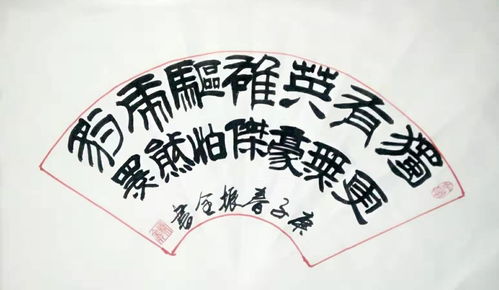 獨有英雄驅虎豹
更無豪傑怕熊羆
庚子春振全書